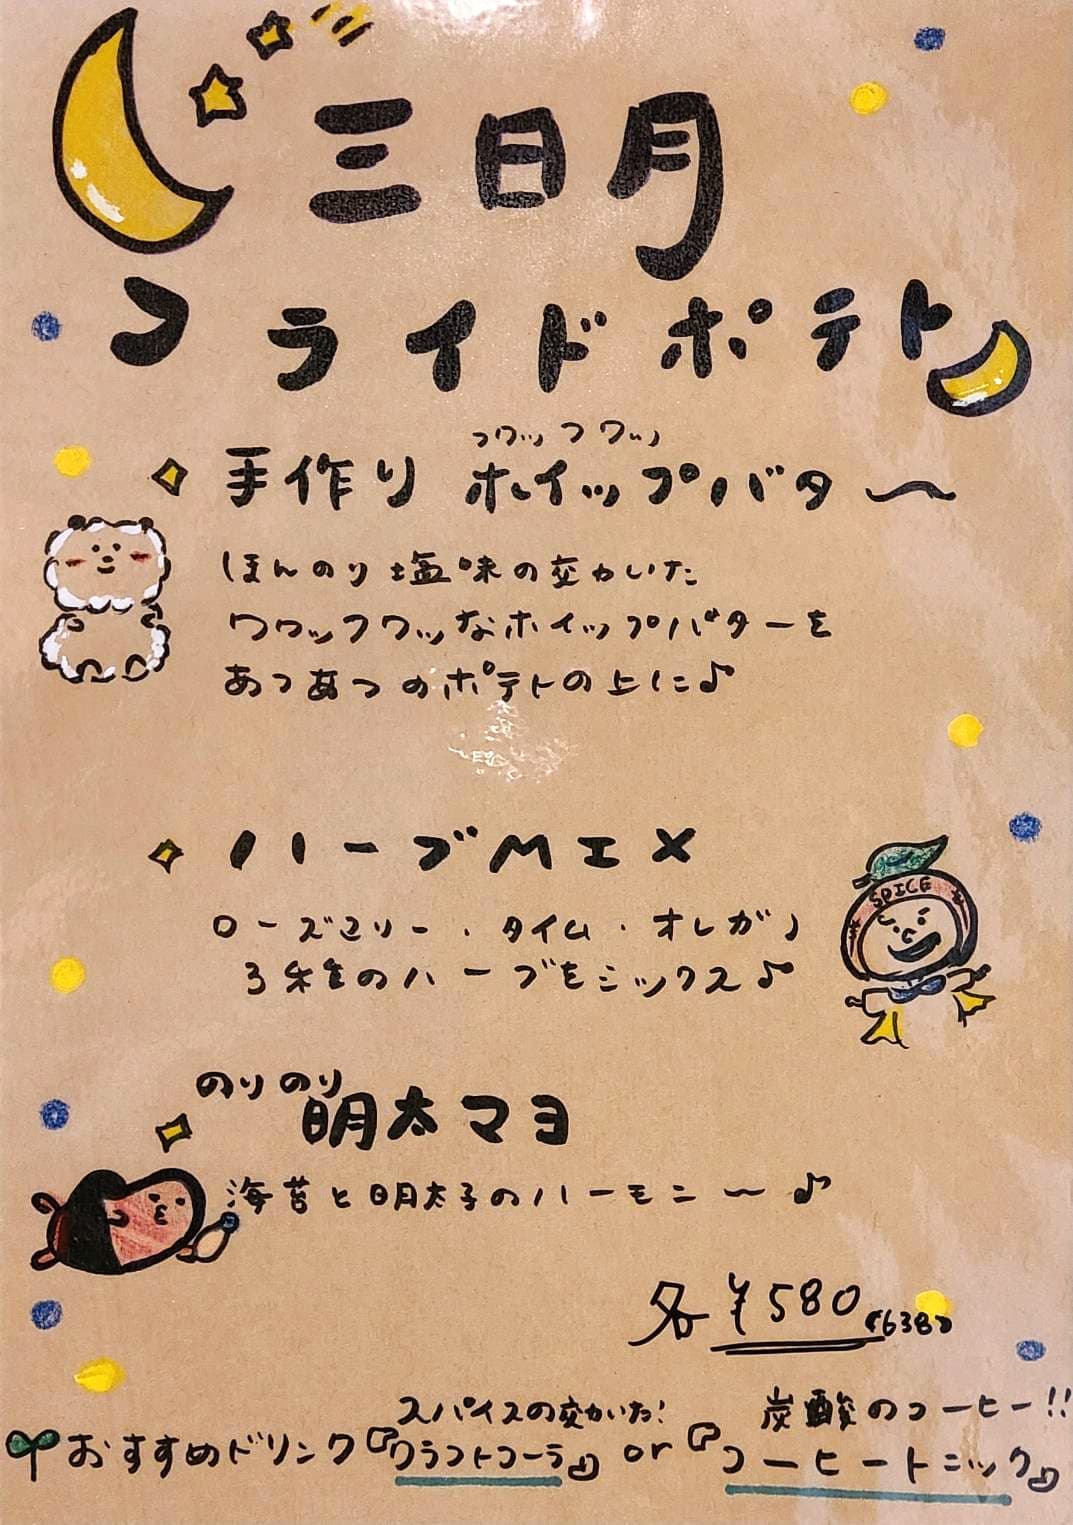 三日月
フライドポテト
フワッフワッ
手作り ホイップバター
ほんのり塩味の効いた
フワッフワッなホイップバターを
あつあつのポテトの上に♪
ハーブMIX
SPICE
ローズマリー・タイム・オレガノ
3種のハーブをミックス♪
のりのり
明太マヨ
海苔と明太子のハーモニー♪
各 ¥580 (638)
スパイスの効いた! 炭酸のコーヒー!!
おすすめドリンク『クラフトコーラ』or『コーヒートニック』